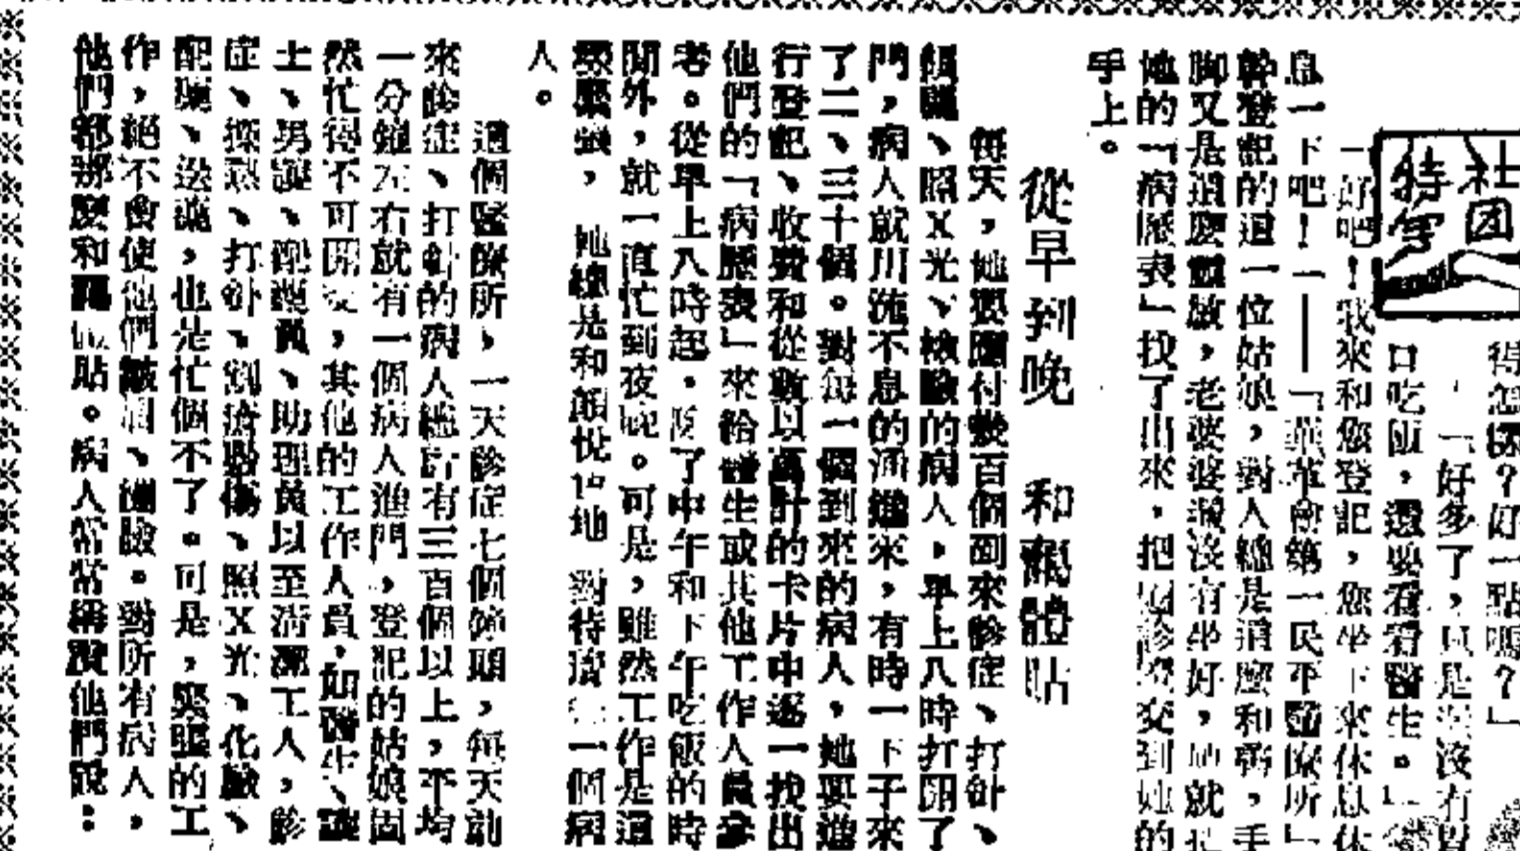 社団
特寫
得怎樣？好一點嗎？」
「好多了，只是還沒有胃
口吃飯，還要看看醫生。」
「好吧！我來和您登記，您坐下來休息休
息一下吧！」——「華革會第一民平醫療所」
幹登記的這一位姑娘，對人總是這麼和藹，手
脚又是這麼靈敏，老婆婆還沒有坐好，她就把
她的「病歷表」找了出來，把 診 交到她的
手上。
從早到晚　和靄體貼
每天，她要應付幾百個到來診症、打針、
個關、照Ｘ光、檢驗的病人。早上八時打開了
門，病人就川流不息的涌進來，有時一下子來
了二、三十個。對每一個到來的病人，她要進
行登記、收費和從數以萬計的卡片中逐一找出
他們的「病歷表」來給醫生或其他工作人員參
考。從早上八時起，除了中午和下午吃飯的時
間外，就一直忙到夜晚。可是，雖然工作是這
麼緊張，她總是和顏悅色地 對待每 一個病
人。
這個醫療所，一天診症七個鐘頭，每天前
來診症、打針的病人總計有三百個以上，平均
一分鐘左右就有一個病人進門，登記的姑娘固
然忙得不可開交，其他的工作人員，如醫生、護
士、男護、配藥員、助理員以至清潔工人，診
症、探熱、打針、 、照Ｘ光、化驗、
配藥、 ，也是忙個不了。可是，緊張的工
作，絕不會使他們皺眉、 臉。對所有病人，
他們都那麼和靄體貼。病人常常稱讚他們說：